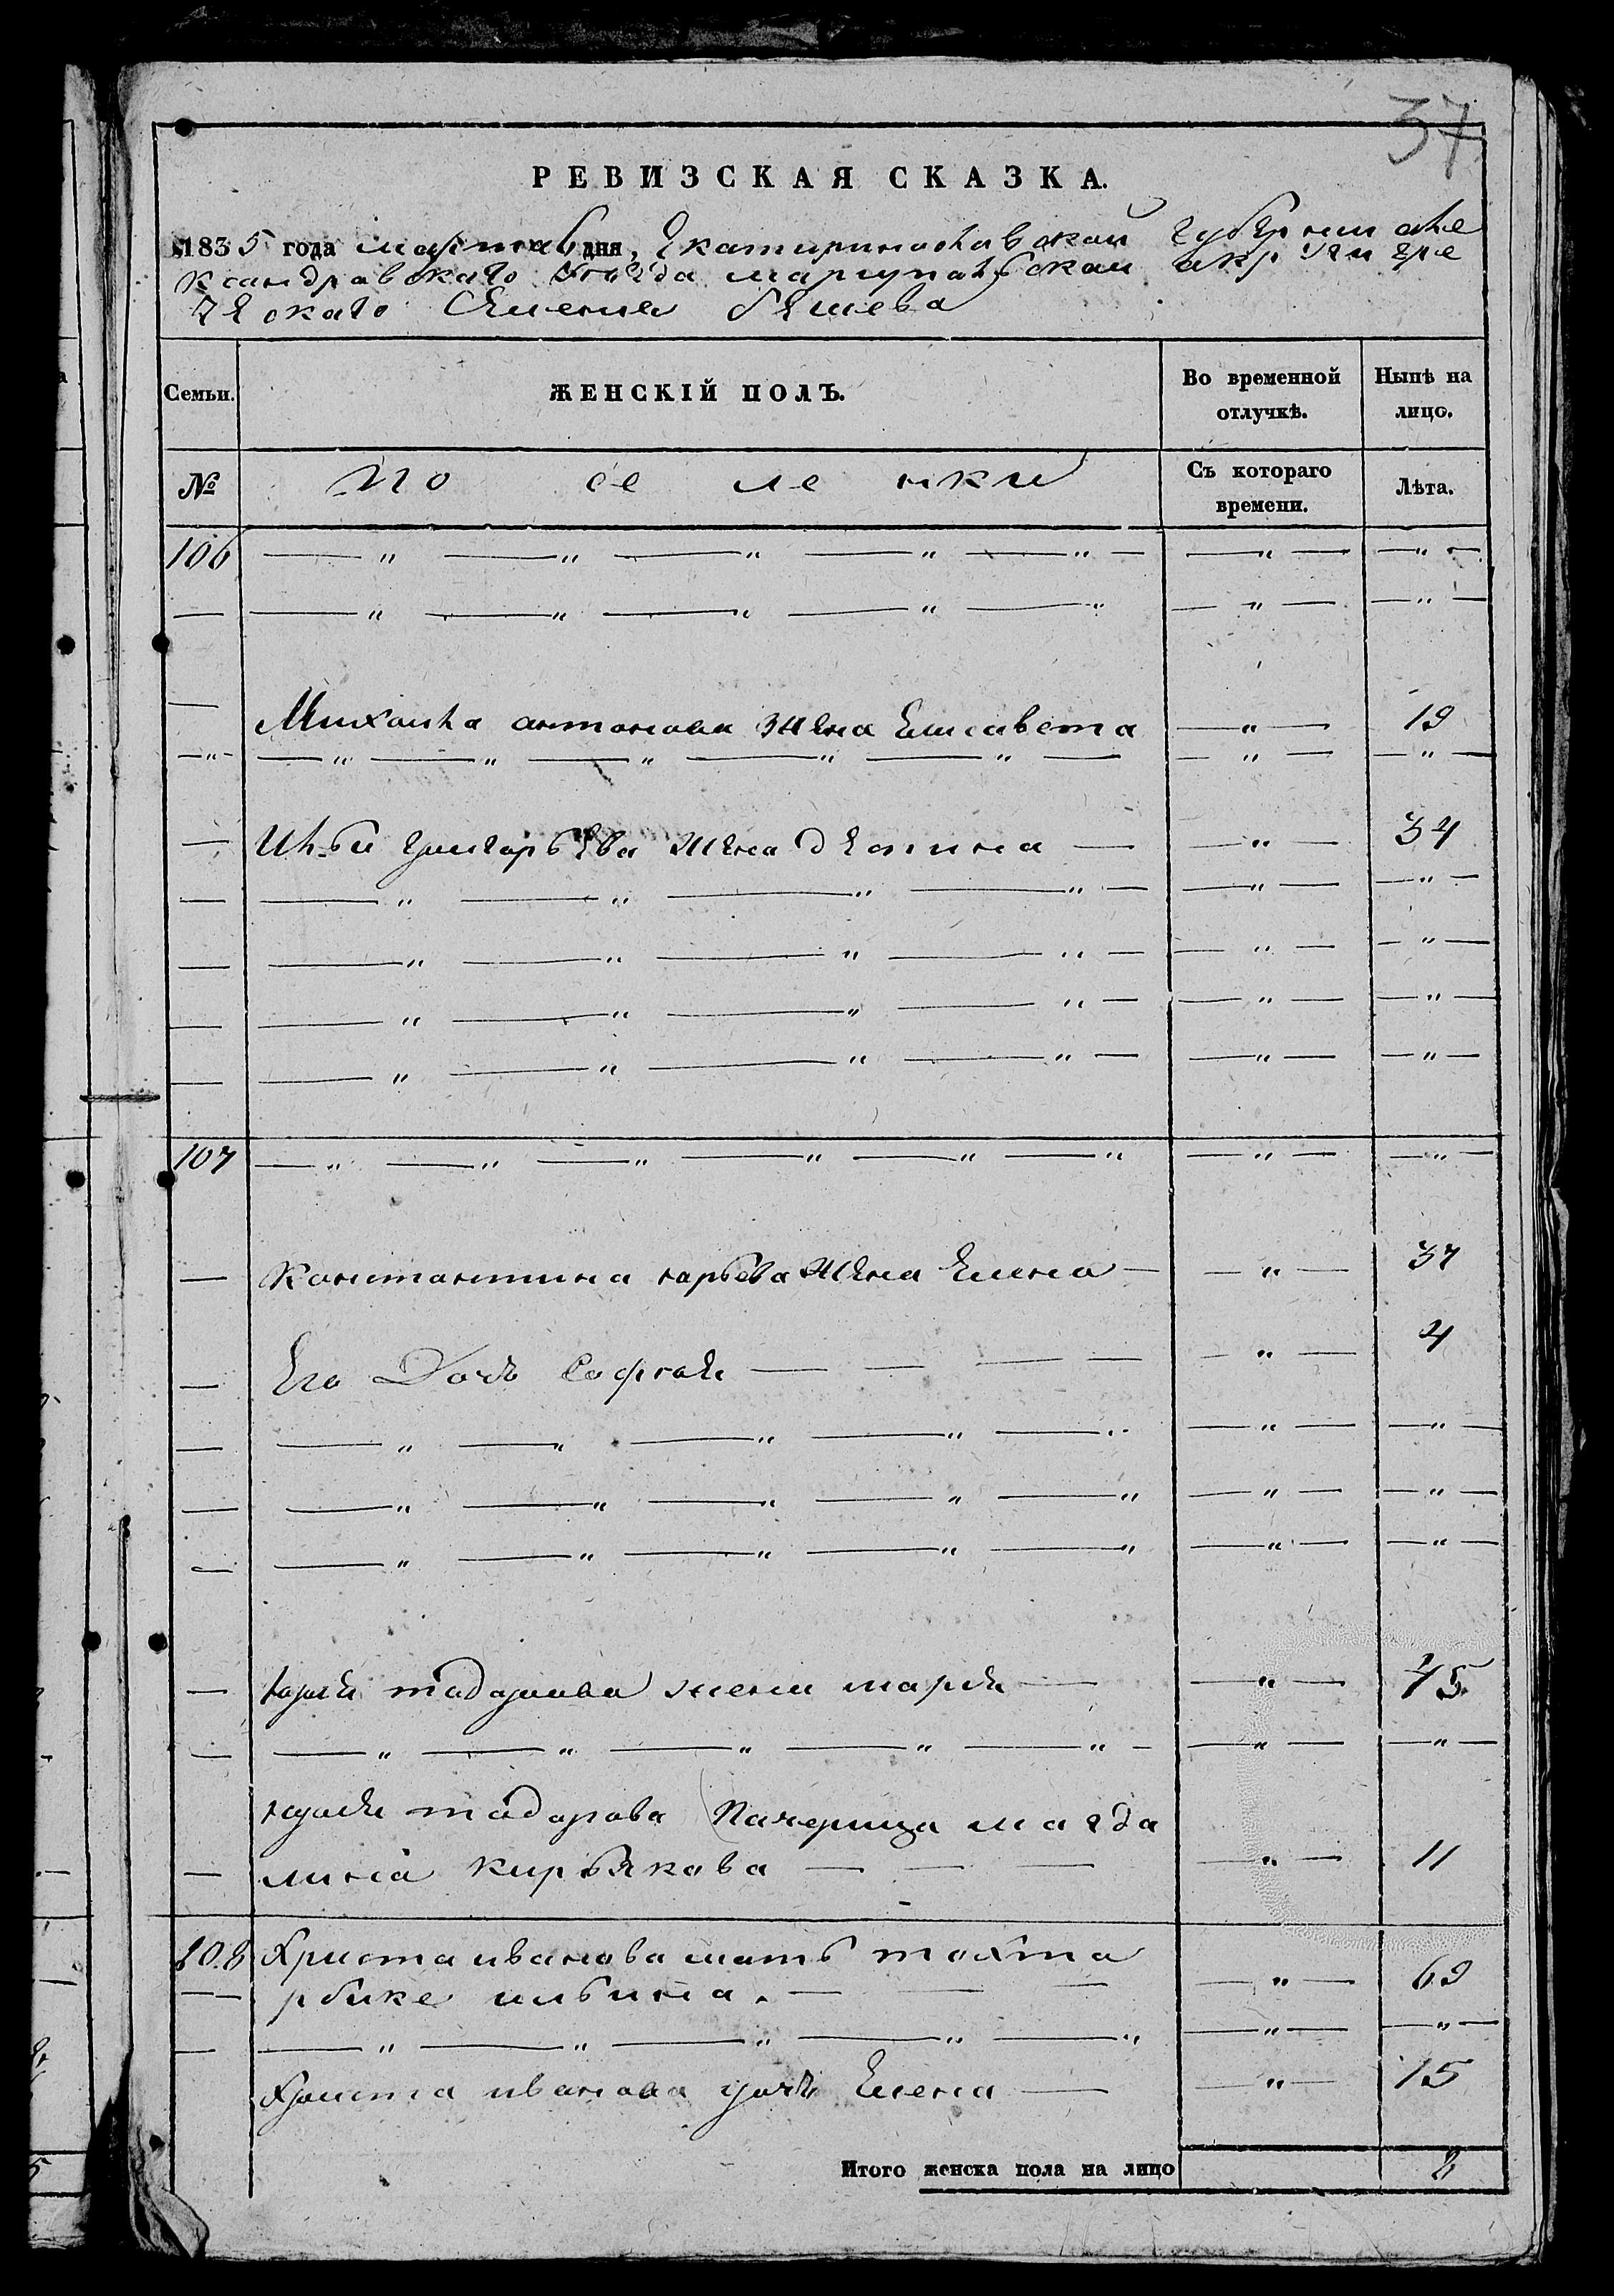 37
РЕВИЗСКАЯ СКАЗКА.
1835 года марта дня, Екатиринославской губернии але
ксандравскаго уезда мариупольской окр уги гре
ческаго селения бешева
Семьи. ЖЕНСКІЙ ПОЛЪ. Во временной отлучкѣ. Нынѣ на лицо.
№ по се ле нки Съ котораго времени. Лѣта.
106 — " — " — " — " — " — — " — — " —
— — " — " — " — " — " — " — — " —
— Михаила антонова жена Елисавета — " — 19
— " — — " — " — " — " — " — — " — — " —
— Ильи григорьева жена — " — 34
— — " — " — " — " — — " — — " —
— — " — " — " — " — — " — — " —
— — " — " — " — " — — " — — " —
— — " — " — " — " — — " — — " —
107 — " — " — " — " — " — " — " — — " —
— Констонтина юрьева жена Елена — — " — 37
— Его Дочь София — — — — — " — 4
— — " — " — " — " — " — " — — " —
— — " — " — " — " — " — " — — " —
— — " — " — " — " — " — " — — " —
— юрия тадорова жена мария — — " — 45
— — " — " — " — " — " — — " — — " —
юрия тадорова Пачерица магда
— лина кирьякова — — — — " — 11
108 Христа иванова мать тохта
— рбике ильина. — — — — " — 69
— — " — " — " — " — " — " — — " —
Христа иванова дочь Елена — — " — 15
Итого женска пола на лицо 8